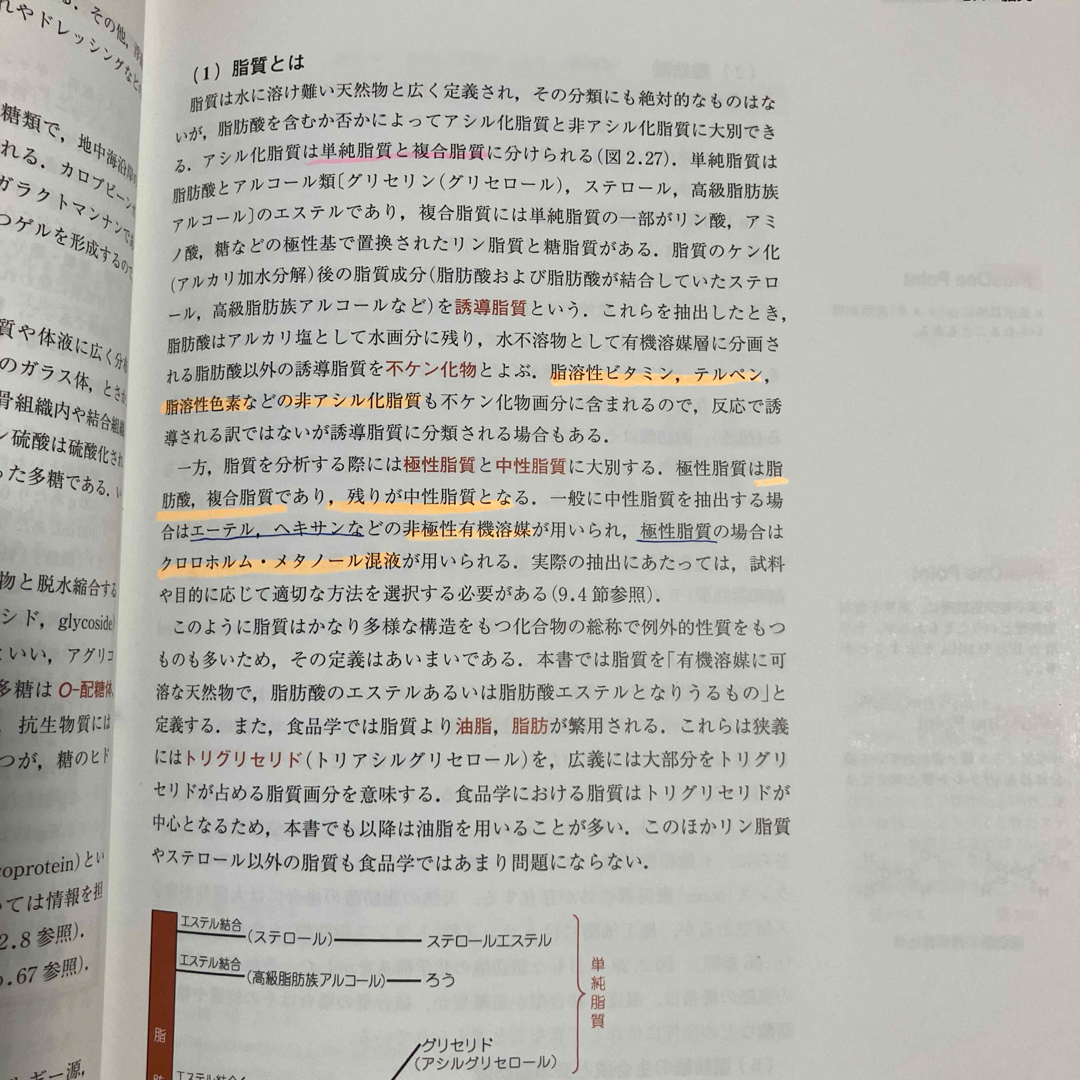 れやドレッシングなど
糖類で，地中海沿岸
れる．カロブビーン
ガラクトマンナンで
つゲルを形成するので
質や体液に広く分布
のガラス体，とさか
骨組織内や結合組織
ン硫酸は硫酸化され
った多糖である．い
物と脱水縮合する
シド，glycoside)
といい，アグリコ
多糖は O-配糖体，
抗生物質には
つが，糖のヒド
coprotein)とい
ては情報を担
2.8 参照)．
p.67 参照)．
ルギー源，
(1) 脂質とは
脂質は水に溶け難い天然物と広く定義され，その分類にも絶対的なものはな
いが，脂肪酸を含むか否かによってアシル化脂質と非アシル化脂質に大別でき
る．アシル化脂質は単純脂質と複合脂質に分けられる(図 2.27)．単純脂質は
脂肪酸とアルコール類〔グリセリン(グリセロール)，ステロール，高級脂肪族
アルコール〕のエステルであり，複合脂質には単純脂質の一部がリン酸，アミ
ノ酸，糖などの極性基で置換されたリン脂質と糖脂質がある．脂質のケン化
(アルカリ加水分解)後の脂質成分(脂肪酸および脂肪酸が結合していたステロ
ール，高級脂肪族アルコールなど)を誘導脂質という．これらを抽出したとき，
脂肪酸はアルカリ塩として水画分に残り，水不溶物として有機溶媒層に分画さ
れる脂肪酸以外の誘導脂質を不ケン化物とよぶ．脂溶性ビタミン，テルペン，
脂溶性色素などの非アシル化脂質も不ケン化物画分に含まれるので，反応で誘
導される訳ではないが誘導脂質に分類される場合もある．
一方，脂質を分析する際には極性脂質と中性脂質に大別する．極性脂質は脂
肪酸，複合脂質であり，残りが中性脂質となる．一般に中性脂質を抽出する場
合はエーテル，ヘキサンなどの非極性有機溶媒が用いられ，極性脂質の場合は
クロロホルム・メタノール混液が用いられる．実際の抽出にあたっては，試料
や目的に応じて適切な方法を選択する必要がある(9.4 節参照)．
このように脂質はかなり多様な構造をもつ化合物の総称で例外的性質をもつ
ものも多いため，その定義はあいまいである．本書では脂質を「有機溶媒に可
溶な天然物で，脂肪酸のエステルあるいは脂肪酸エステルとなりうるもの」と
定義する．また，食品学では脂質より油脂，脂肪が繁用される．これらは狭義
にはトリグリセリド(トリアシルグリセロール)を，広義には大部分をトリグリ
セリドが占める脂質画分を意味する．食品学における脂質はトリグリセリドが
中心となるため，本書でも以降は油脂を用いることが多い．このほかリン脂質
やステロール以外の脂質も食品学ではあまり問題にならない．
エステル結合
(ステロール) ステロールエステル
エステル結合
(高級脂肪族アルコール) ろう
グリセリド
(アシルグリセロール)
単純脂質
脂